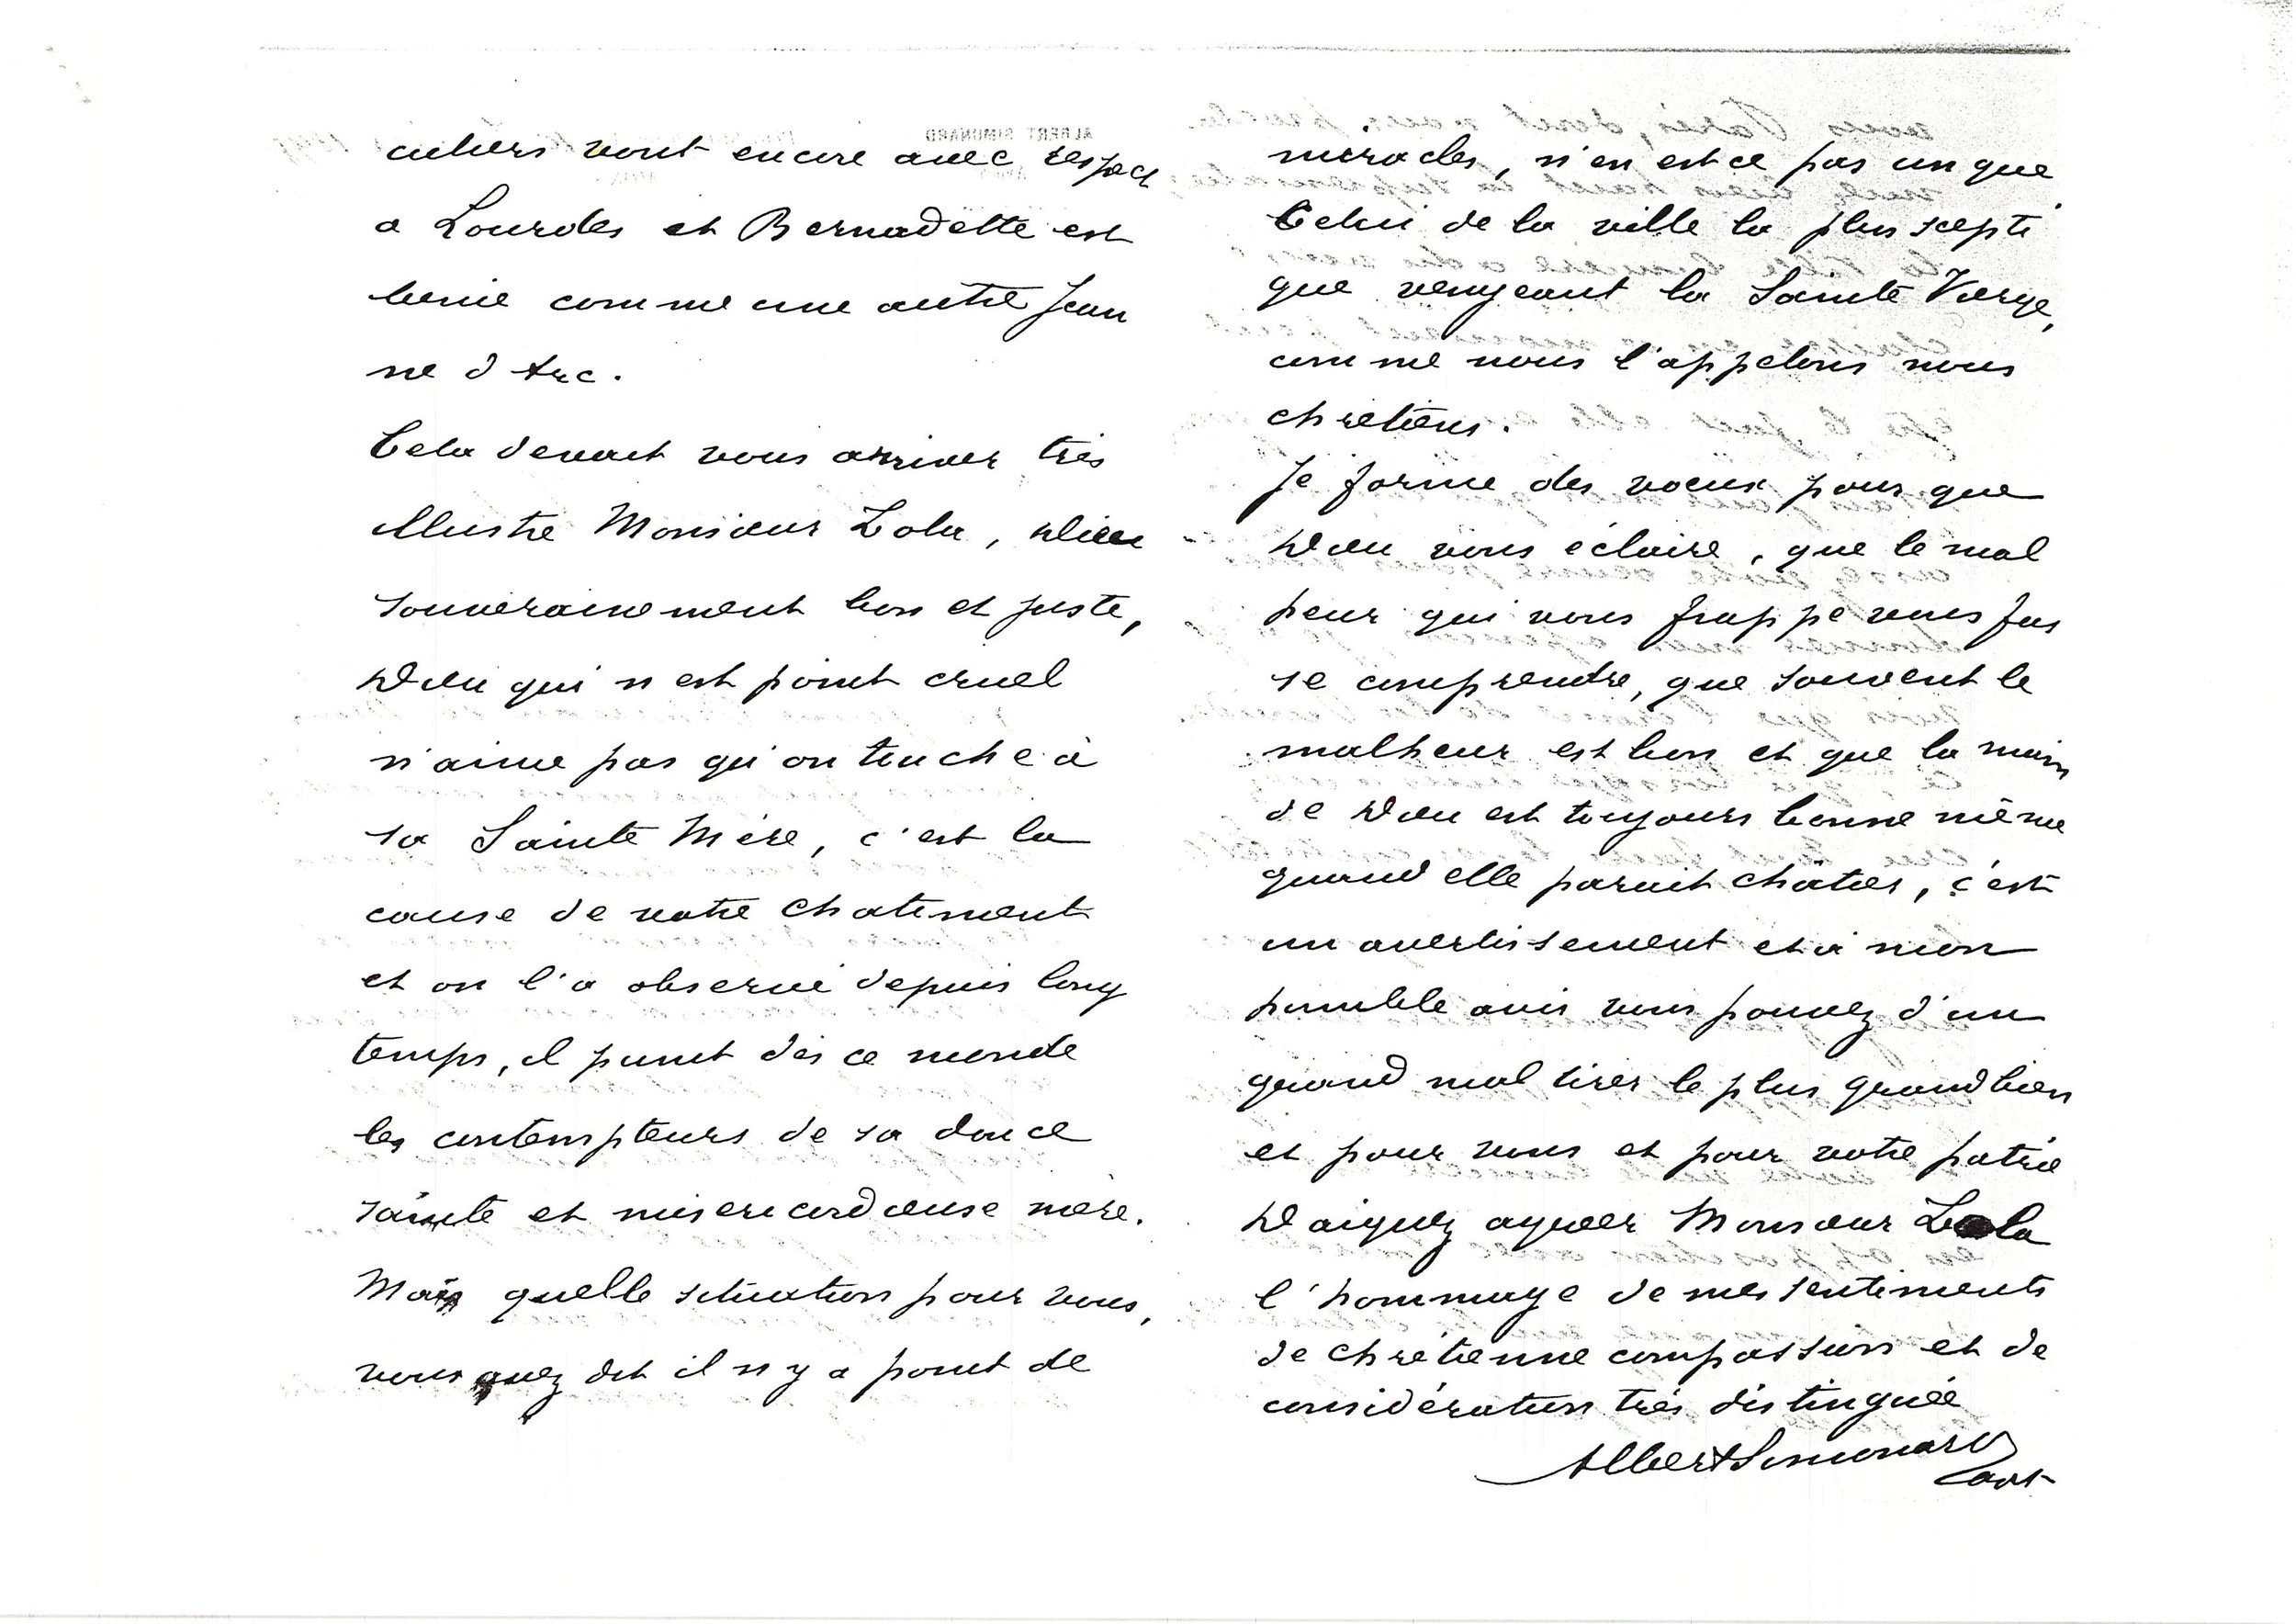 culiers vont encore avec respect
a Lourdes et Bernadette est
benie comme une autre Jean
ne d Arc.
Cela devait vous arriver très
illustre Monsieur Zola, Dieu
souverainement bon et juste,
Dieu qui n est point cruel
n'aime pas qu'on touche à
sa Sainte Mère, c'est la
cause de votre chatiment
et on l'a observé depuis long
temps, il punit dès ce monde
les contempteurs de sa douce
sainte et misericordieuse mère.
Mais quelle situation pour vous,
vous avez dit il n y a point de
miracles, n'en est ce pas un que
Celui de la ville la plus scepti
que vengeant la Sainte Vierge,
comme nous l'appelons nous
chrétiens.
Je forme des voeux pour que
Dieu vous éclaire, que le mal
heur qui vous frappe vous fas
se comprendre, que souvent le
malheur est bon et que la main
de Dieu est toujours bonne même
quand elle parait châtier, c'est
un avertissement et à mon
humble avis vous pouvez d'un
grand mal tirer le plus grand bien
et pour vous et pour votre patrie
Daignez agréer Monsieur Zola
l'hommage de mes sentiments
de chrétienne compassion et de
considération très distinguée
Albert Simonard
ALBERT SIMONARD